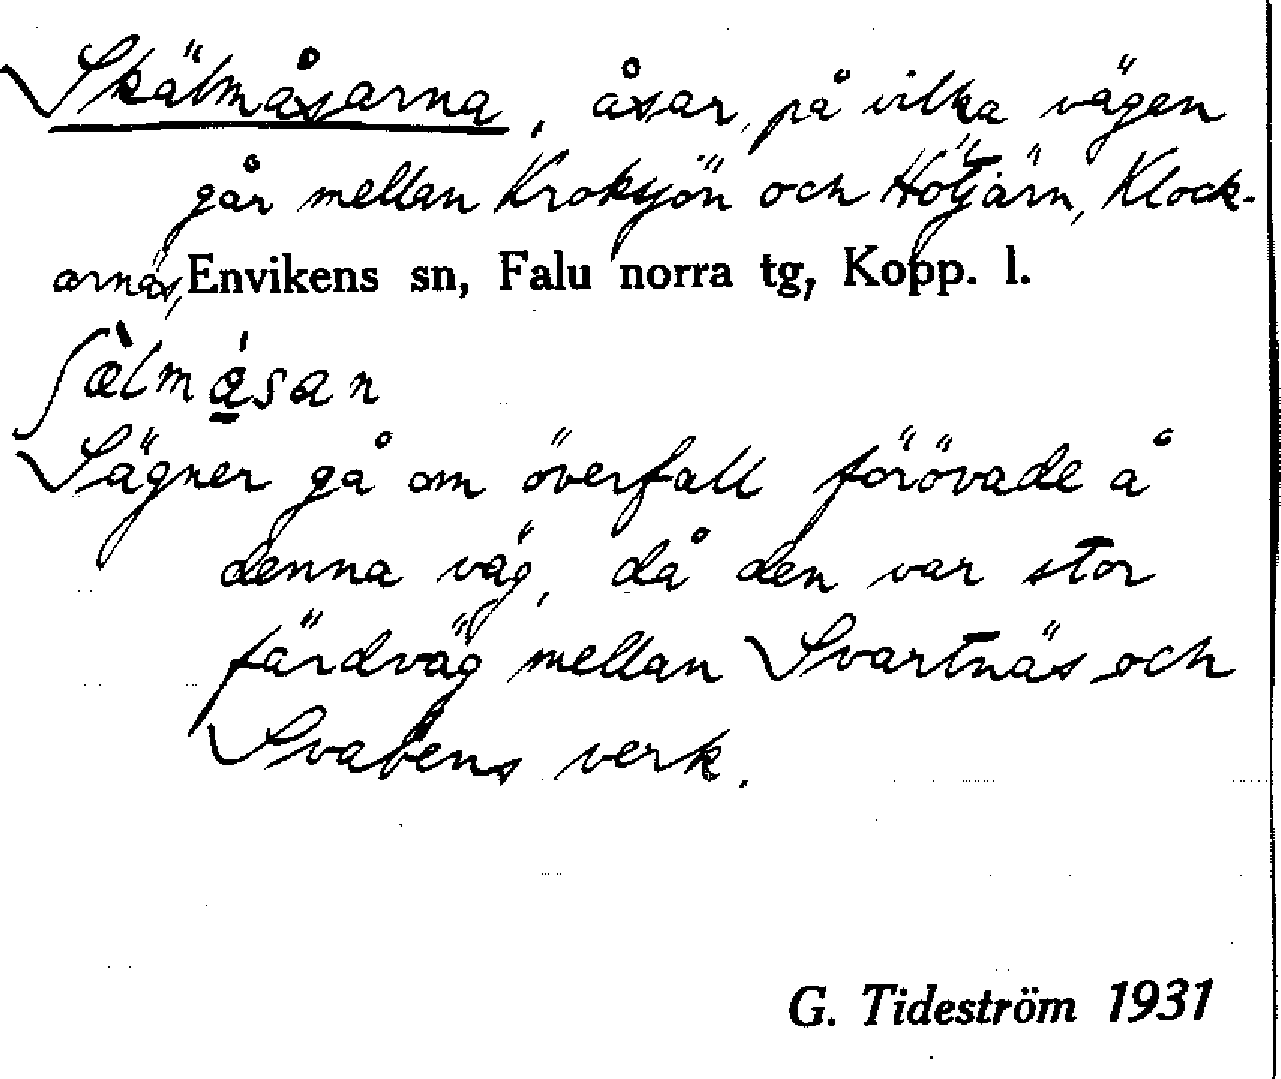 Skälmåsarna, åsar, på vilka vägen
går mellan Kroksjön och Hötjärn, Klock-
arnäs, Envikens sn, Falu norra tg, Kopp. l.
ʃæ̀lmǻ̱san
Sägner gå om överfall förövade å
denna väg, då den var stor
färdväg mellan Svartnäs och
Svabens verk.
G. Tideström 1931